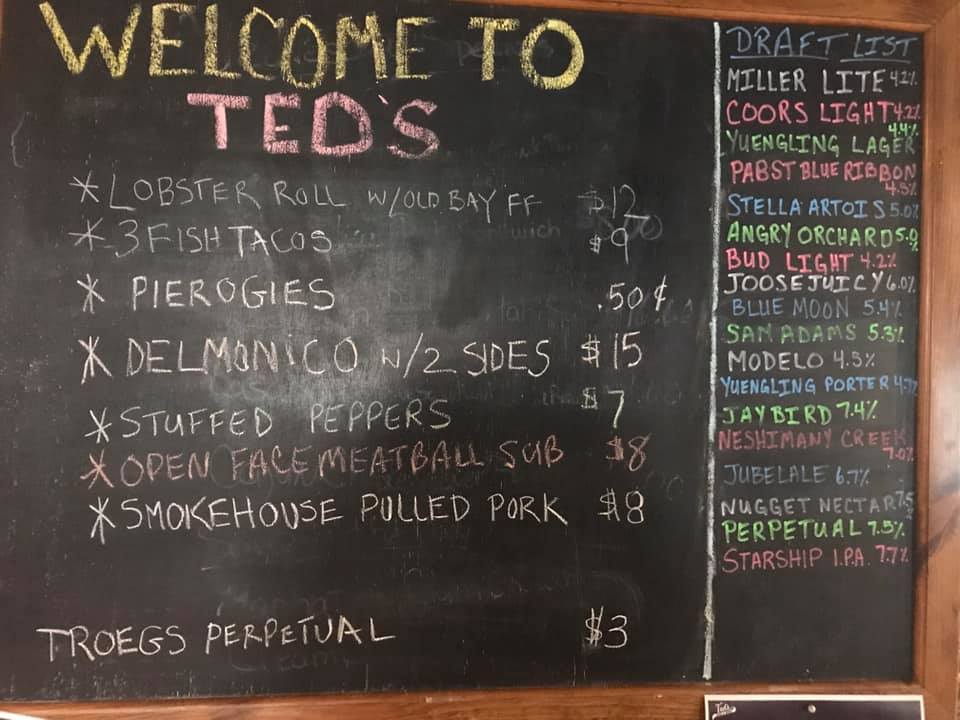 WELCOME TO
TED'S
* LOBSTER ROLL W/OLD BAY FF $12
* 3 FISH TACOS $9
* PIEROGIES .50¢
* DELMONICO W/2 SIDES $15
* STUFFED PEPPERS $7
* OPEN FACE MEATBALL SUB $8
* SMOKEHOUSE PULLED PORK $8
TROEGS PERPETUAL $3
DRAFT LIST
MILLER LITE 4.2%
COORS LIGHT 4.2%
YUENGLING LAGER 4.4%
PABST BLUE RIBBON 4.5%
STELLA ARTOIS 5.0%
ANGRY ORCHARD 5.0%
BUD LIGHT 4.2%
JOOSE JUICY 6.0%
BLUE MOON 5.4%
SAM ADAMS 5.3%
MODELO 4.5%
YUENGLING PORTER 4.7%
JAYBIRD 7.4%
NESHIMANY CREEK 7.0%
JUBELALE 6.7%
NUGGET NECTAR 7.5
PERPETUAL 7.5%
STARSHIP I.P.A. 7.7%